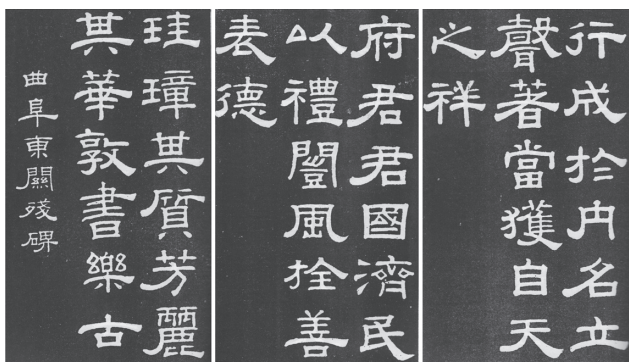 行成於内名立
聲著當獲自天
之祥
府君君國濟民
以禮闓風拴善
表德
珪璋其質芳麗
其華敦書樂古
曲阜東關殘碑